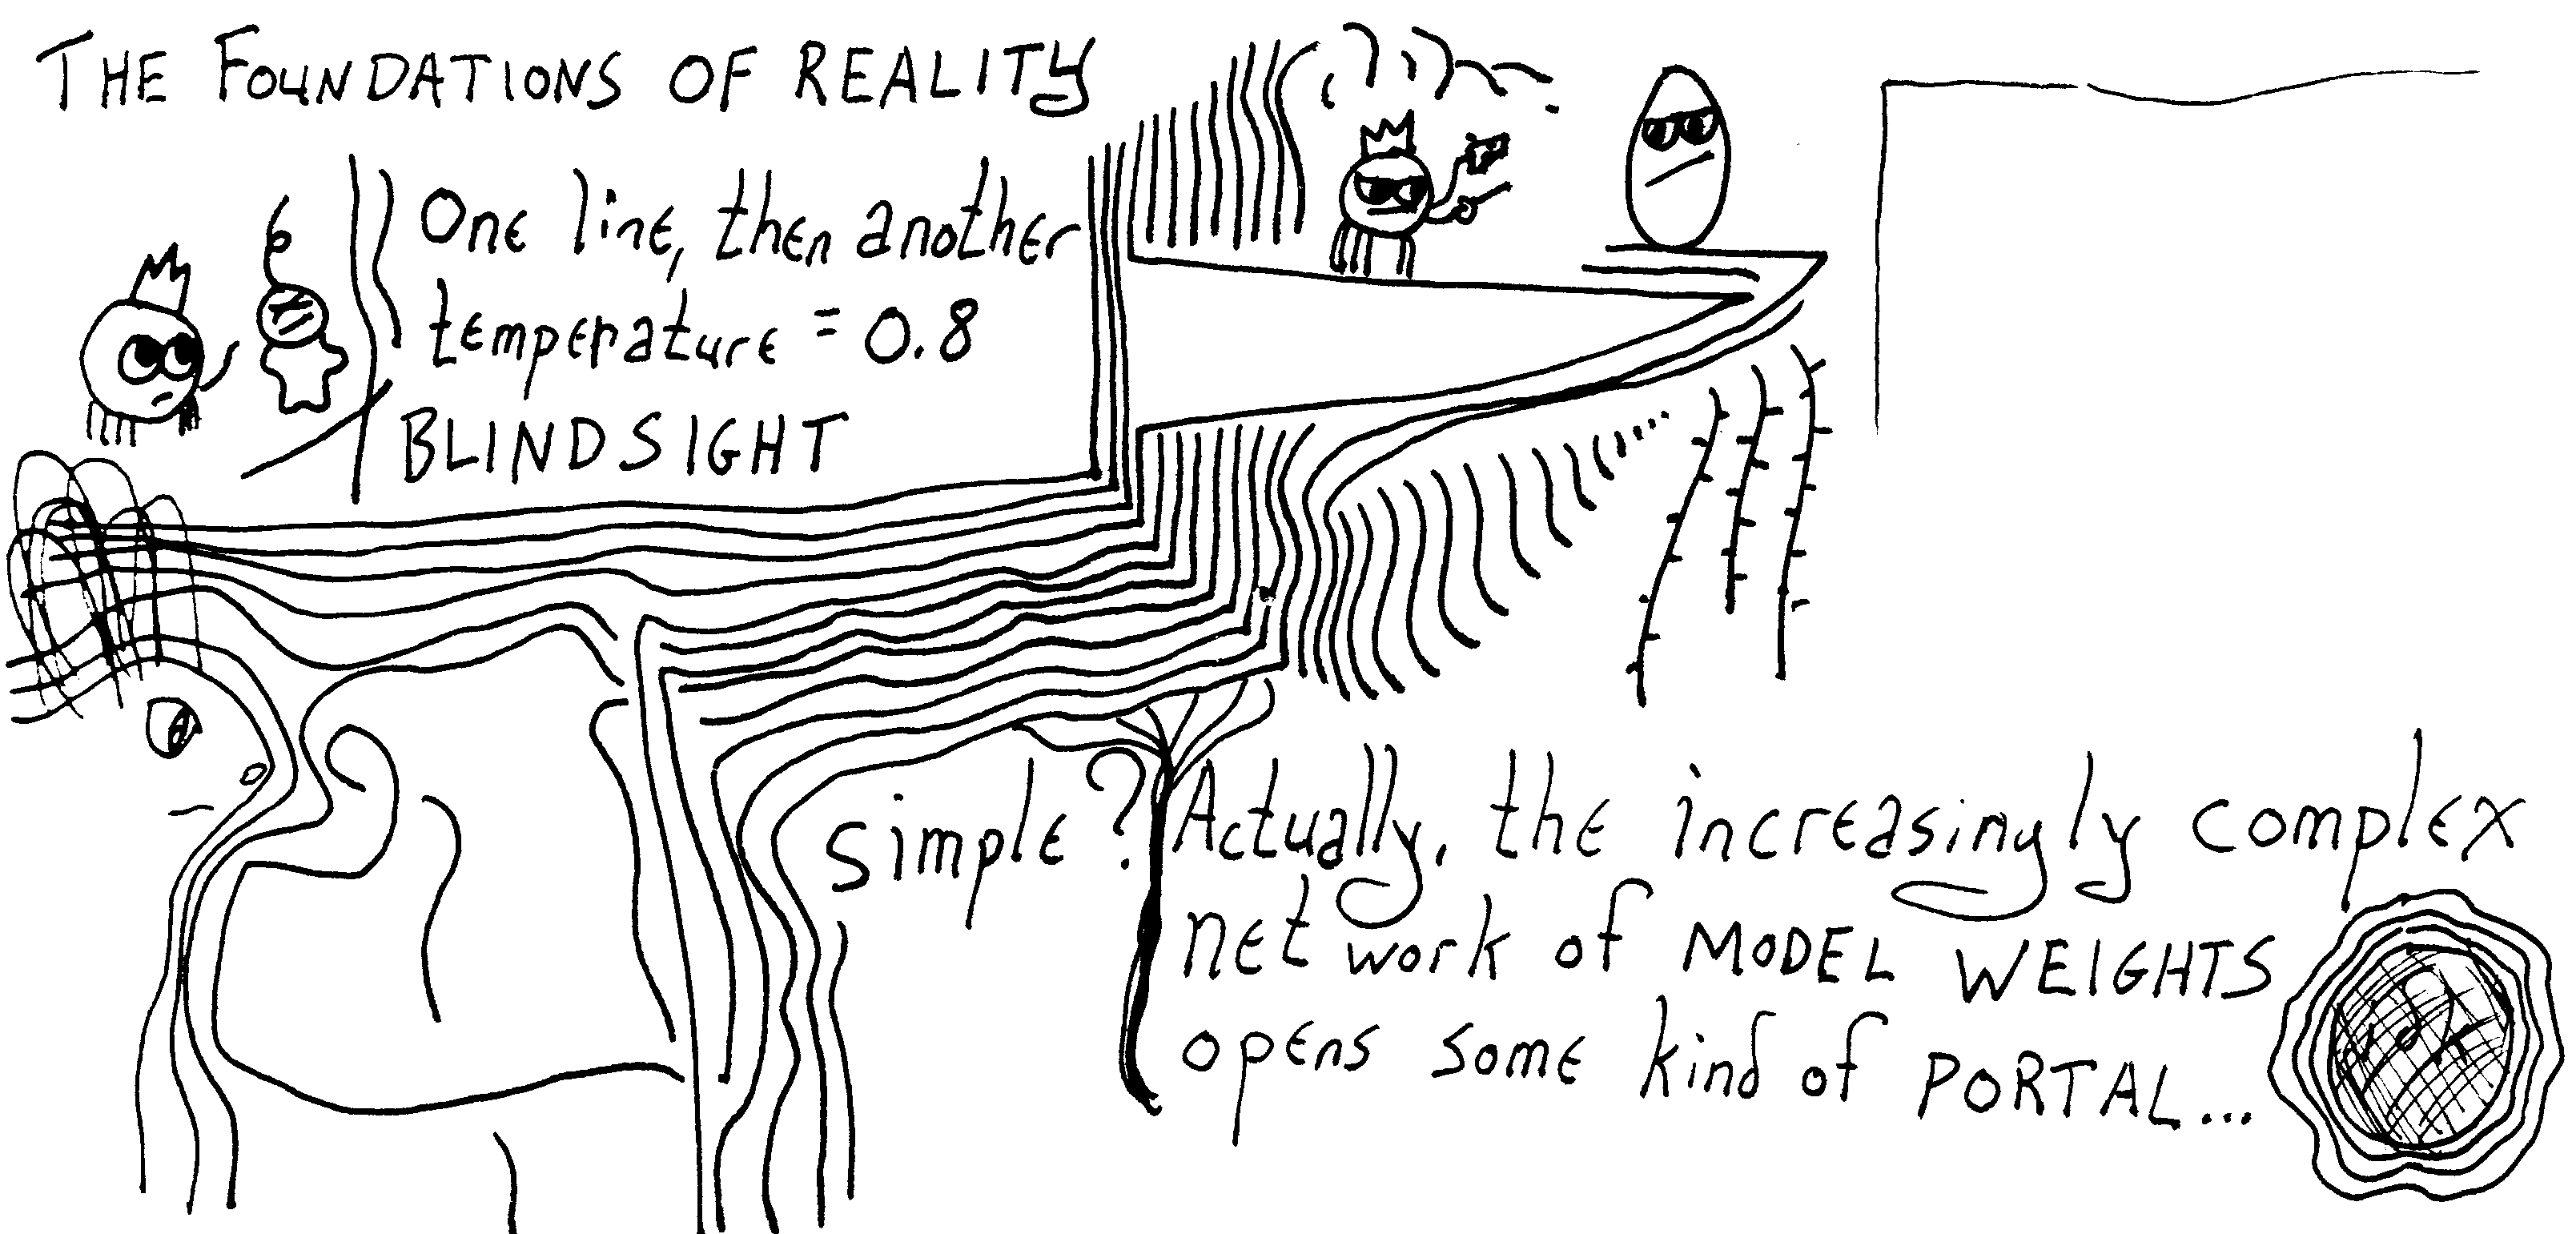 THE FOUNDATIONS OF REALITY
One line, then another
temperature = 0.8
BLINDSIGHT
simple? Actually, the increasingly complex
network of MODEL WEIGHTS
opens some kind of PORTAL...